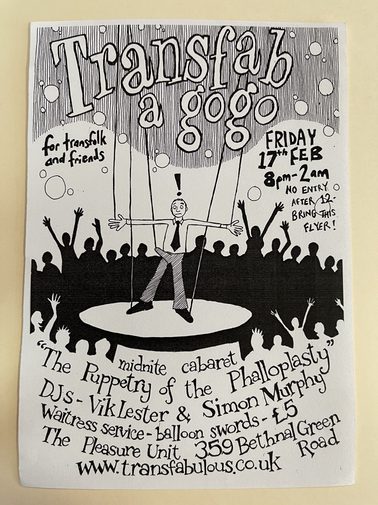 Transfab
a gogo
for transfolk
and friends
FRIDAY
17th FEB
8pm-2am
NO ENTRY
AFTER 12-
BRING THIS
FLYER!
!
midnite cabaret
"The Puppetry of the Phalloplasty"
DJs - Vik Lester & Simon Murphy
Waitress service - balloon swords - £5
The Pleasure Unit 359 Bethnal Green
Road
www.transfabulous.co.uk